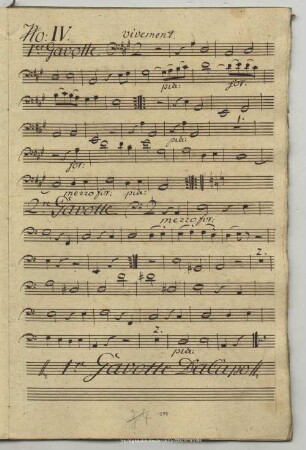 No: IV. vivement.
1.re Gavotte
pia: for.
pia:
for.
mezzo for. pia:
2.re Gavotte
mezzo for.
2.
2. pia:
1.re Gavotte DaCapo